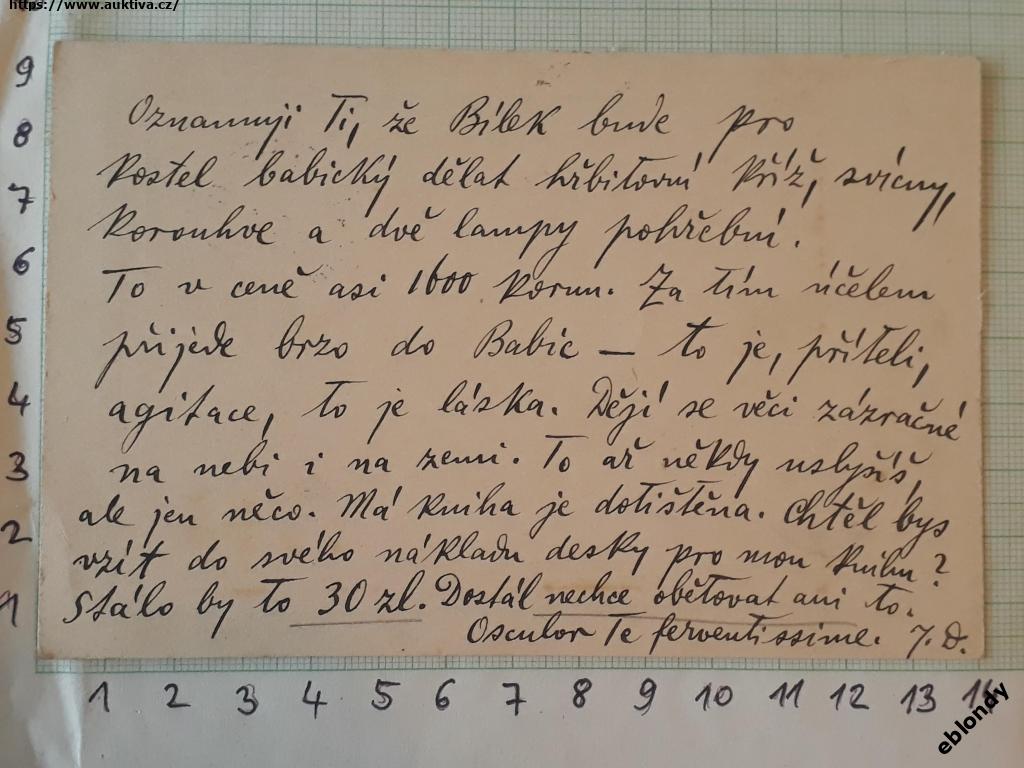 https://www.auktiva.cz/
Oznamuji Ti, že Bílek bude pro
kostel babický dělat hřbitovní kříž, svícny,
korouhve a dvě lampy pohřební.
To v ceně asi 1600 korun. Za tím účelem
přijede brzo do Babic — to je, příteli,
agitace, to je láska. Dějí se věci zázračné
na nebi i na zemi. To až někdy uslyšíš,
ale jen něco. Má kniha je dotištěna. Chtěl bys
vzít do svého nákladu desky pro mou knihu?
Stálo by to 30 zl. Dostál nechce obětovat ani to.
Osculor Te ferventissime. J. D.
9
8
7
6
5
4
3
2
1
1 2 3 4 5 6 7 8 9 10 11 12 13 14
eblondy